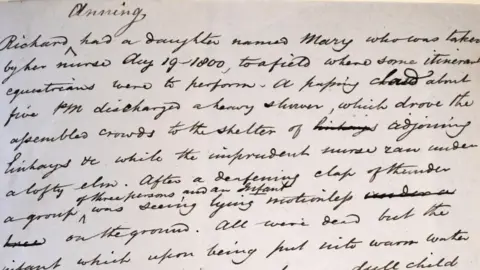 Anning
Richard, had a daughter named Mary who was taken
by her nurse Aug 19-1800, to a field where some itinerant
equestrians were to perform. A passing cloud about
five PM discharged a heavy shower, which drove the
assembled crowds to the shelter of linhays adjoining
linhays &c while the imprudent nurse ran under
a lofty elm. After a deafening clap of thunder
of three persons and an Infant
a group was seeing lying motionless under a
tree on the ground. All were dead but the
infant which upon being put into warm water
dull child